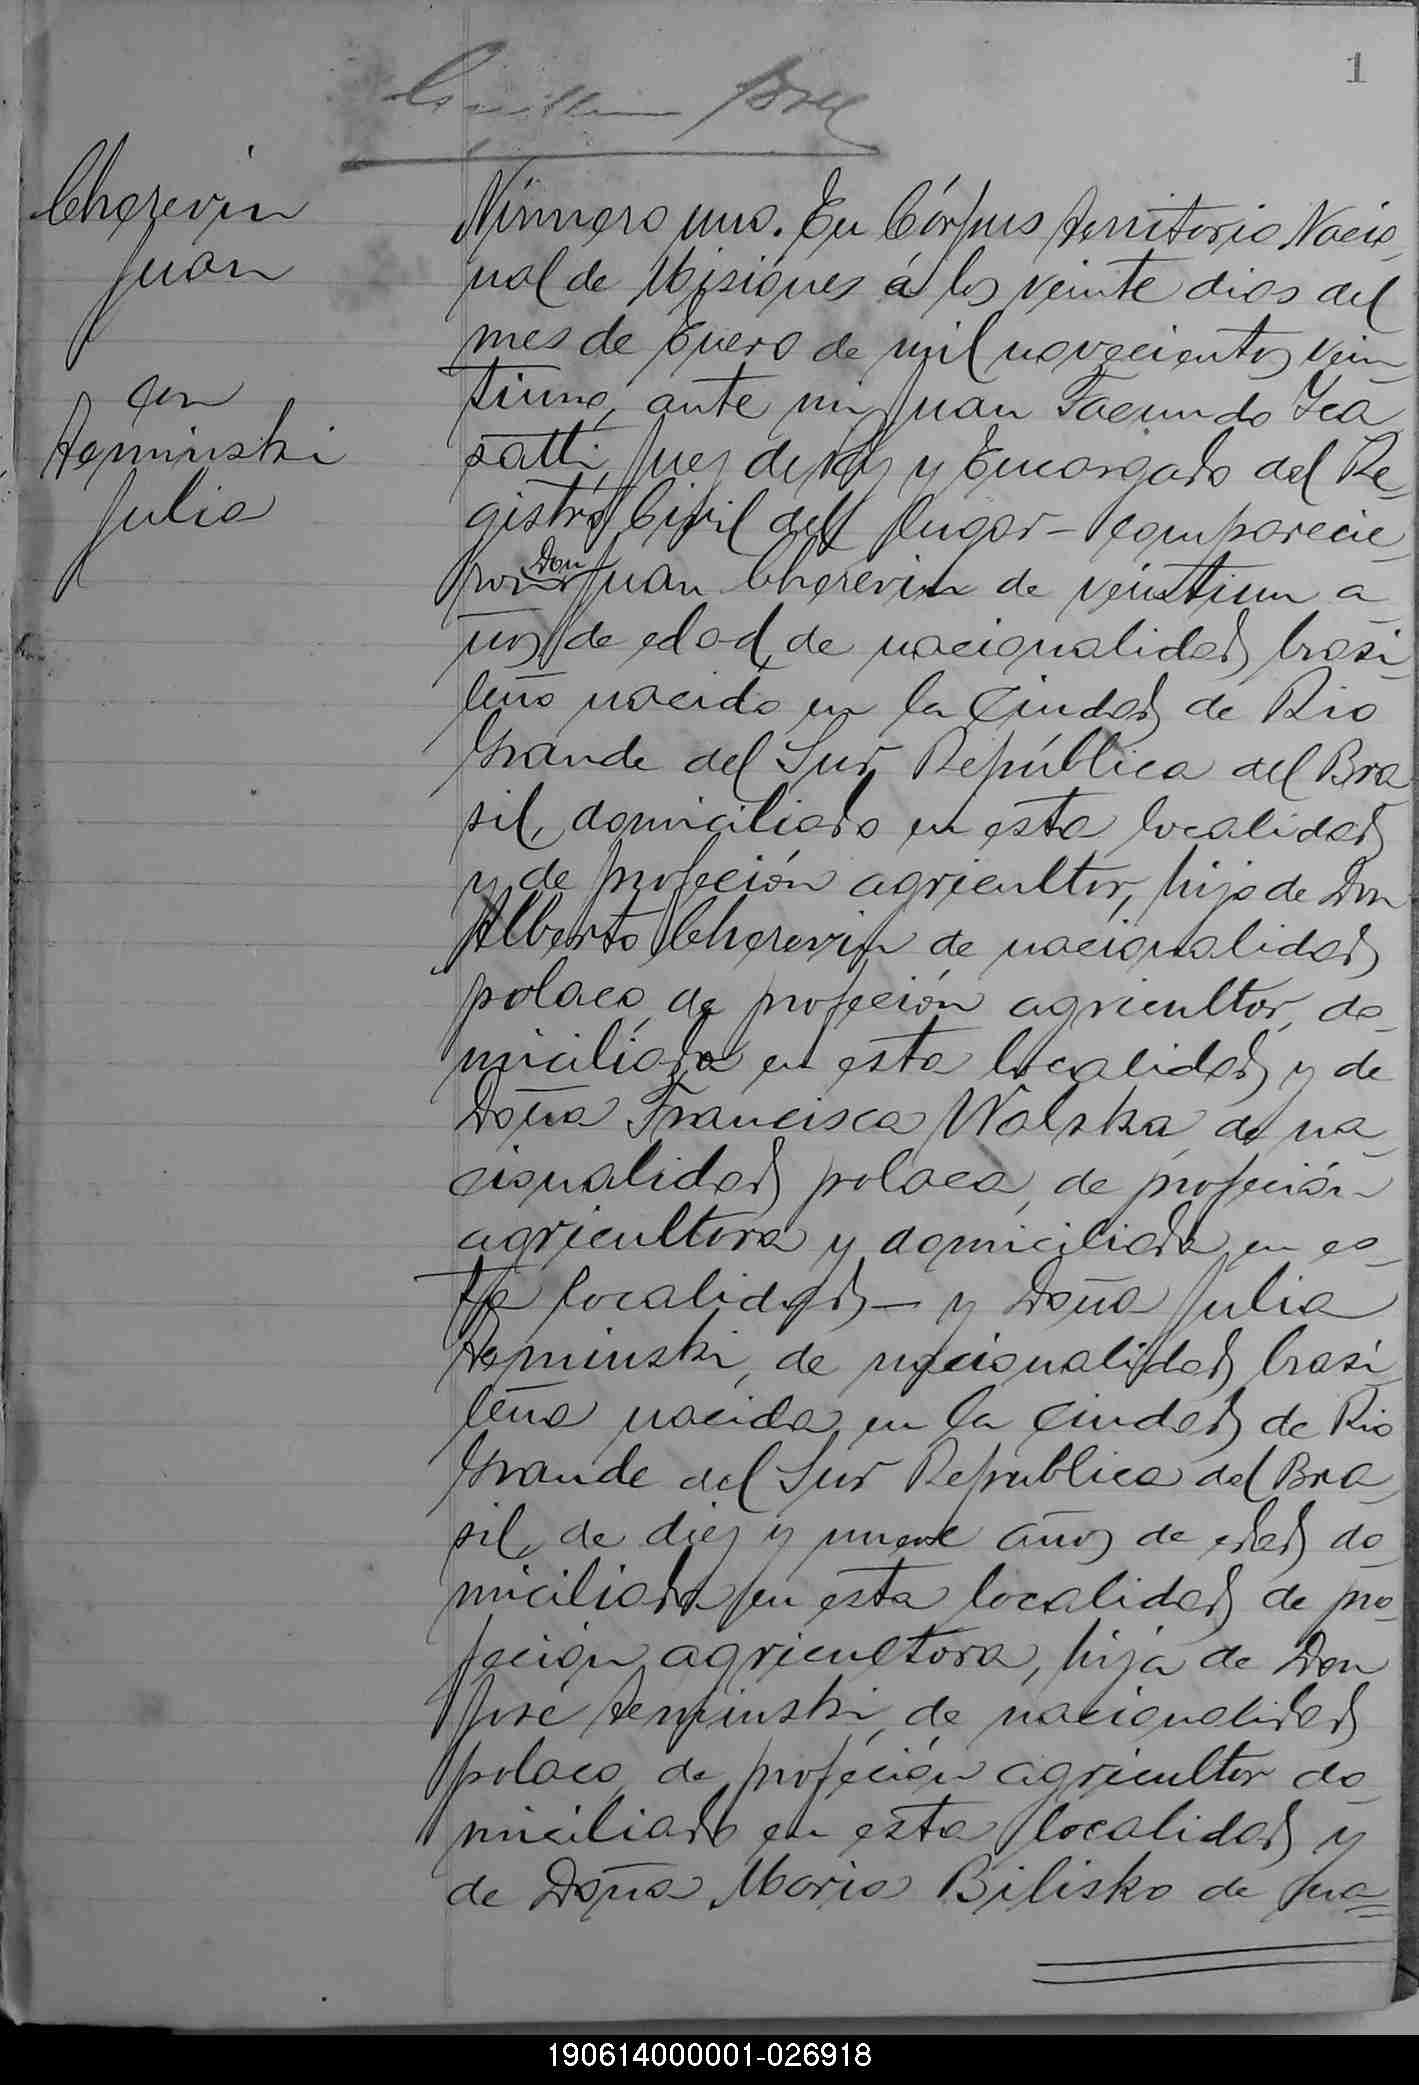 1
Cherevin
Juan
con
Aeminski
Julia
Número uno. En Córpus Territorio Nacio
nal de Misiones á los veinte dias del
mes de Enero de mil novecientos vein
tiuno, ante mi Juan Facundo
Juez de Paz y Encargado del Re
gistro Civil del lugar – comparecie
ron Don Juan Cherevin de veintiun a
ños de edad, de nacionalidad brasi
leño nacido en la Ciudad de Rio
Grande del Sur República del Bra
sil, domiciliado en esta localidad
y de profeción agricultor, hijo de Don
Alberto Cherevin de nacionalidad
polaco, de profeción agricultor, do
miciliado en esta localidad y de
Doña Francisca Walska de na
cionalidad polaca, de profeción
agricultora y domiciliada en es
ta localidad – y Doña Julia
Aeminski, de nacionalidad brasi
leña nacida en la Ciudad de Rio
Grande del Sur Republica del Bra
sil, de diez y nueve años de edad do
miciliada en esta localidad de pro
feción agricultora, hija de Don
José Aeminski, de nacionalidad
polaco, de profeción agricultor do
miciliado en esta localidad y
de Doña Maria Bilisko de na=
190614000001-026918